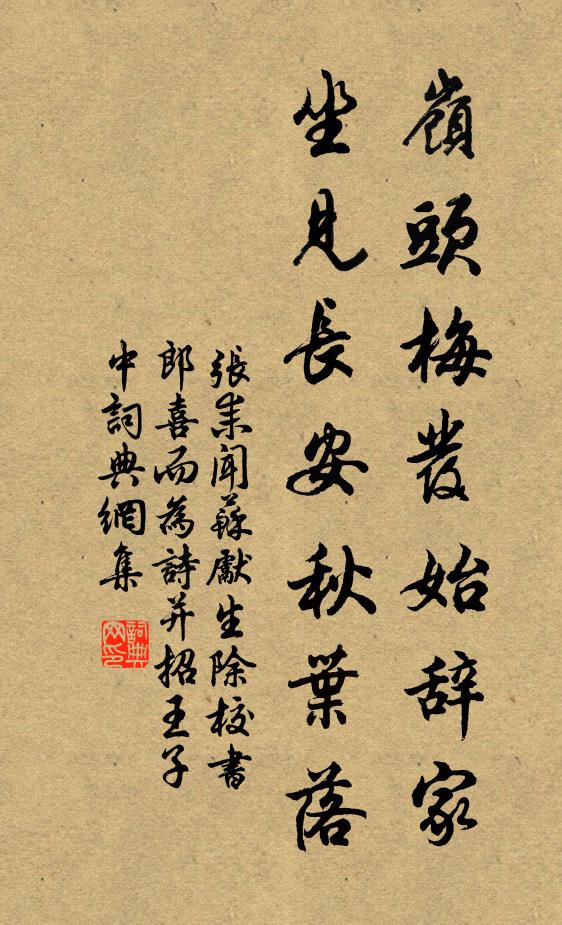 嶺頭梅發始辞家
坐見長安秋葉落
張耒聞蘇獻生除校書
郎喜而為詩并招王子
中詞典網集
詞典
网印